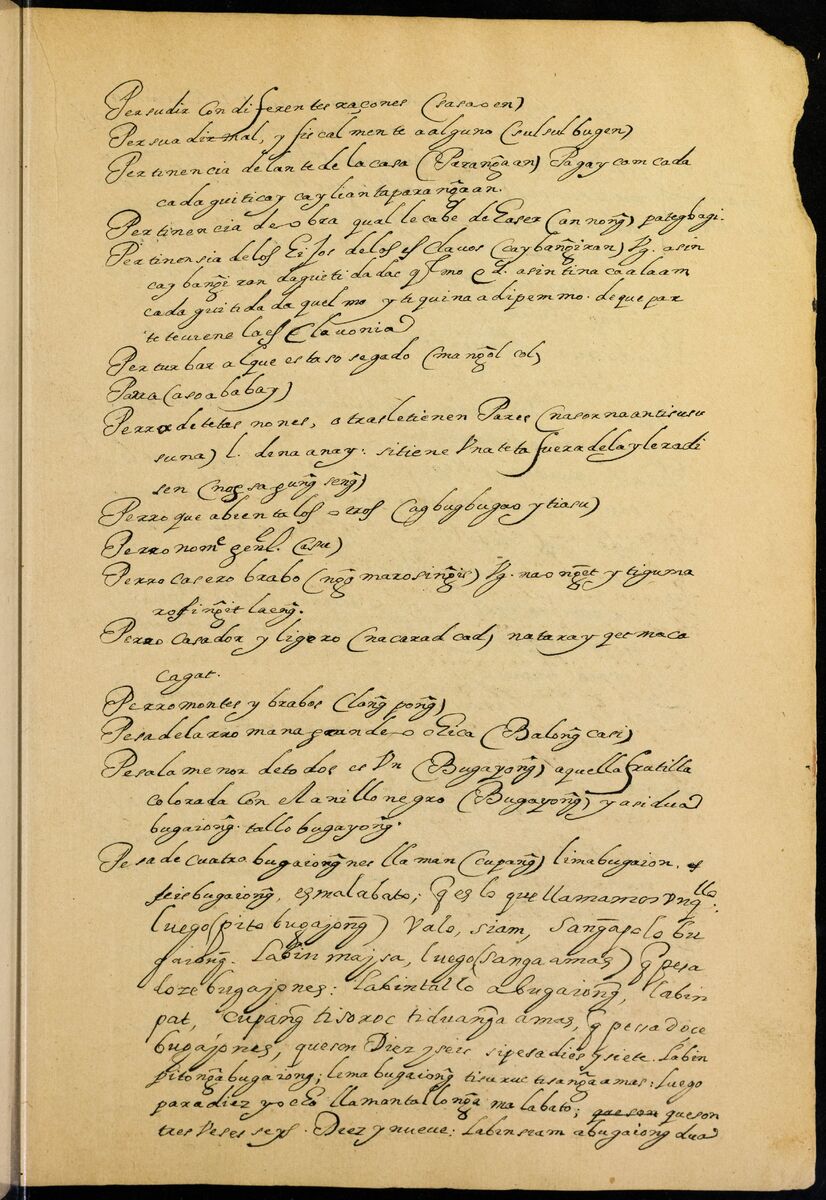 Persudir con diferentes raçones (sasaoen)
Persuadir mal, y fiscalmente a alguno (sulsulbugen)
Pertinencia delante de la casa (Parang̃aan) Pagay com cada
cadaguiticay cayliantaparang̃aan.
Pertinencia de obra qual le cabe de haser (annong̃) pategbagi.
Pertinensia de los hijos de los esclavos (caybang̃iran) Vg. asin
caybang̃iran daguitidadac qͥmo Pͤd. asintinacaalaam
cadaguitidadaquelmo ytiquinaadipemmo. de que par
te teviene la esclavonia
Perturbar al que esta sosegado (mang̃olcol)
Parra (asoababay)
Perro de tetas nones, otras le tienen Pares (nasornaantisusu
suna) l. denaanay: si tiene Vna teta fuera de la ylera di
sen (nog̃sagung̃seng̃)
Perro que abienta los otros (agbugbugao ytiasu)
Perro nomͤ genͬl. (asu)
Perro casero brabo (ng̃g marosing̃is) Vg. naong̃et ytiguma
rossing̃it laeng̃.
Perro Casador y ligero (nacaradcad) nataray qet maca
cagat.
Perro montes y brabos (long̃pong̃)
Pesa de la rromana grande o chica (Balong̃casi)
Pesa la menor de todos es Vn (Bugayong̃) aquella frutilla
colorada con el anillo negro (Bugayong̃) y asi dua
bugaiong̃. tallo bugayong̃.
Pesa de cuatro bugaiong̃nes llaman (cupang̃) limabugaion.
seis bugaiong̃, es malabato; q̃ es lo que llamamos Vngͫͣllo.
luego (pito bugajong̃) Valo, siam, Sang̃apolo bu
gaiong̃. Labin maysa, luego (sangaamas) q̃ pesa
doze bugajones: labintallo a bugaiong̃, labin
pat, cupang̃ tisoroc tiduang̃a amas, q̃ pesa doce
bugajones, que son Diez y seis si pesa dies y siete. Labin
pitong̃abugaiong̃; limabugaiong̃ tisuruc tisang̃aamas: luego
para diez y ocho llaman tallong̃a malabato; que son que son
tres Veses seys. Diez y nueve: Labinsiam abugaiong̃ dua